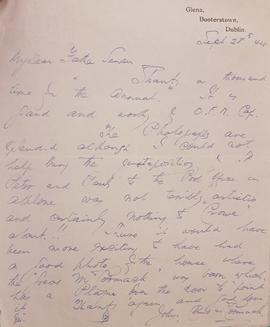 Glena,
Booterstown,
Dublin.
Sept 27th 44
My dear Father Senan
Thanks a thousand
time for the Annual. It is
Grand and worthy of O.F.M. Cap.
The Photographs are
splendid although I could not
help being the juxtaposition of "
Peter and Paul" to the Post office in
Athlone was not terribly artistic
and certainly nothing to "Crave"
about." Sure it would have
been more exciting to have had
a good photo of the house where
the great McCormack was born which
has a Plaque over the door to point
it Thanks again and God love
you John McCormack